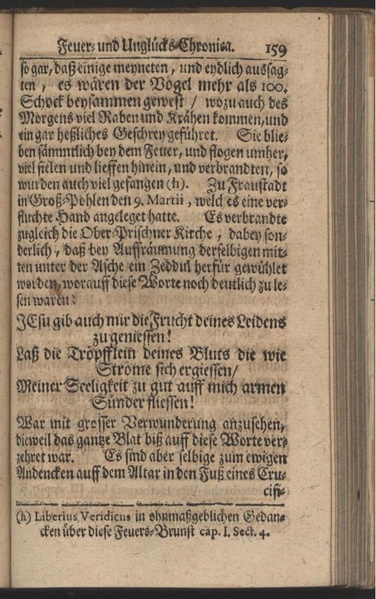 Feuer- und Unglücks-Chronica. 159
so gar, daß einige meyneten, und eydlich aussag-
ten, es wären der Vögel mehr als 100.
Schock beysammen gewest / wozu auch des
Morgens viel Raben und Krähen kommen, und
ein gar heßliches Geschrey geführet. Sie blie-
ben sämmtlich bey dem Feuer, und flogen umher,
viel fielen und lieffen hinein, und verbrandten, so
wurden auch viel gefangen (h). Zu Fraustadt
in Groß-Pohlen den 9. Martii, welches eine ver-
fluchte Hand angeleget hatte. Es verbrandte
zugleich die Ober-Prischner Kirche, dabey son-
derlich, daß bey Auffräumung derselbigen mit-
ten unter der Asche ein Zeddul herfür gewühlet
worden, worauff diese Worte noch deutlich zu le-
sen waren:
JEsu gib auch mir die Frucht deines Leidens
zu geniessen!
Laß die Tröpfflein deines Bluts die wie
Ströme sich ergiessen /
Meiner Seeligkeit zu gut auff mich armen
Sünder fliessen!
War mit grosser Verwunderung anzusehen,
dieweil das gantze Blat biß auff diese Worte ver-
zehret war. Es sind aber selbige zum ewigen
Andencken auff dem Altar in den Fuß eines Cru-
cifi-
(h) Liberius Veridicus in ohnmaßgeblichen Gedan-
cken über diese Feuers-Brunst cap. I. Sect. 4.